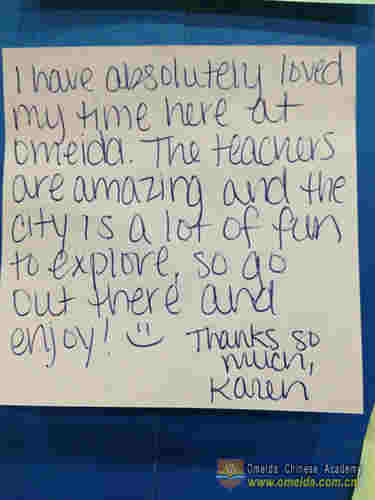 I have absolutely loved
my time here at
Omeida. The teachers
are amazing and the
city is a lot of fun
to explore, so go
out there and
enjoy! :)
Thanks so
much,
Karen
Omeida Chinese Academy
www.omeida.com.cn